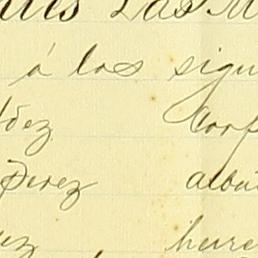 á los sigu
dez Corp
Perez albu
ez herre